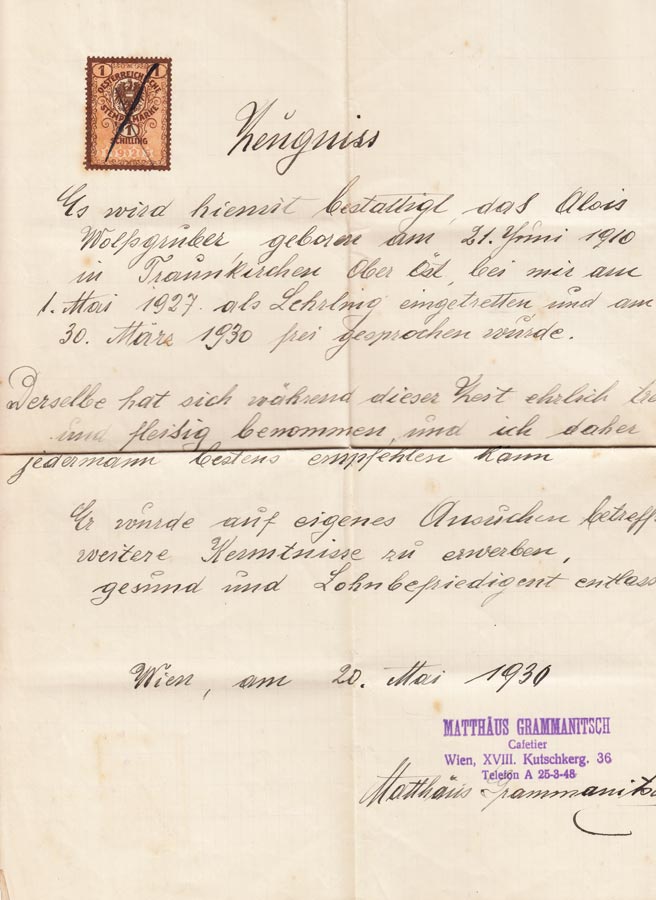 1 1
OESTERREICHISCHE
STEMPELMARKE
1
SCHILLING
Zeugniss
Es wird hiemit bestättigt, das Alois
Wolfsgruber geboren am 21. Juni 1910
in Traunkirchen Ober Öst, bei mir am
1. Mai 1927. als Lehrling eingetretten und am
30. März 1930 frei gesprochen wurde.
Derselbe hat sich während dieser Zeit ehrlich
und fleißig benommen, und ich daher
jedermann bestens empfehlen kann
Er wurde auf eigenes Ansuchen betreff
weitere Kenntnisse zu erwerben,
gesund und Lohnbefriedigent entlass
Wien, am 20. Mai 1930
MATTHÄUS GRAMMANITSCH
Cafetier
Wien, XVIII. Kutschkerg. 36
Telefon A 25-3-48
Matthäus Grammanits